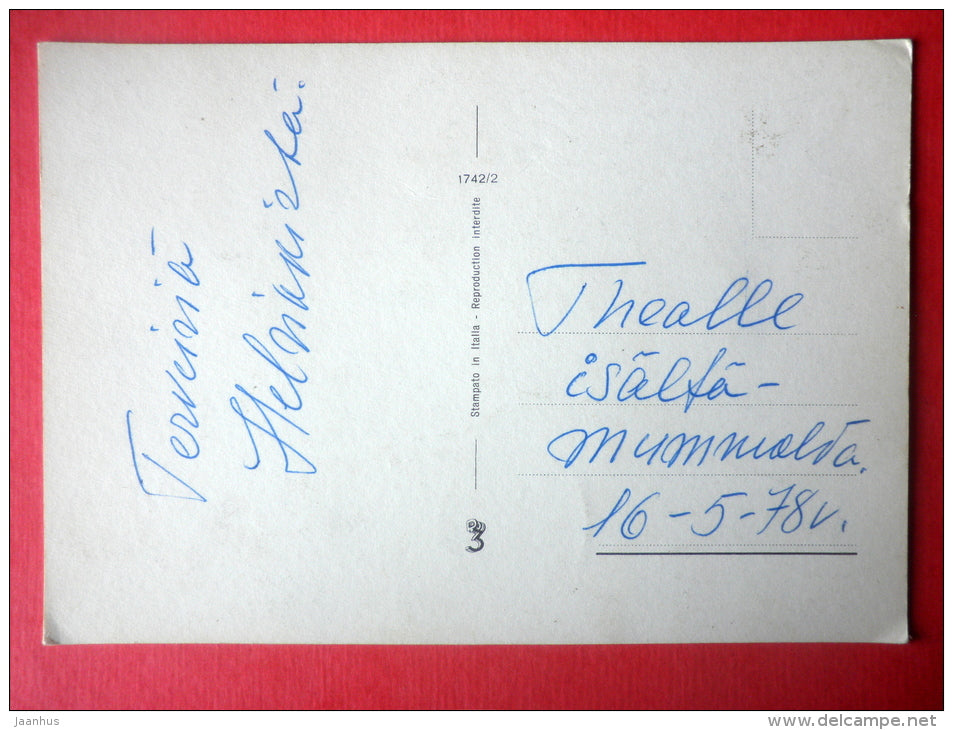 Terveisiä
Helsingistä.
1742/2
Stampato in Italia - Reproduction interdite
3
Thealle
isältä-
mummolta.
16-5-78v.
jaanhus
www.delcampe.net